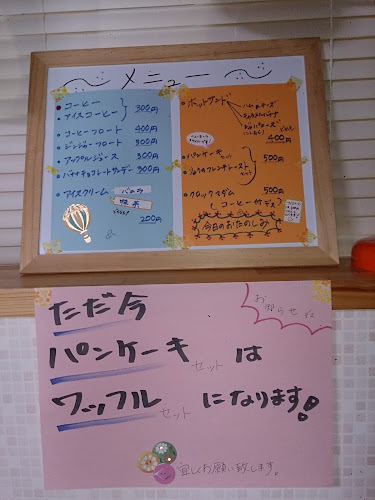 メニュー
コーヒー
アイスコーヒー 300円
コーヒーフロート 400円
ジンジャーフロート 500円
アップルジュース 300円
バナナチョコレートサンデー 300円
アイスクリーム バニラ
抹茶
200円
ホットサンド
400円
パンケーキセット 500円
クロックマダム 500円
(コーヒー付デス)
今日のおたのしみ
お知らせ
ただ今
パンケーキセットは
ワッフルセットになります!
宜しくお願い致します。